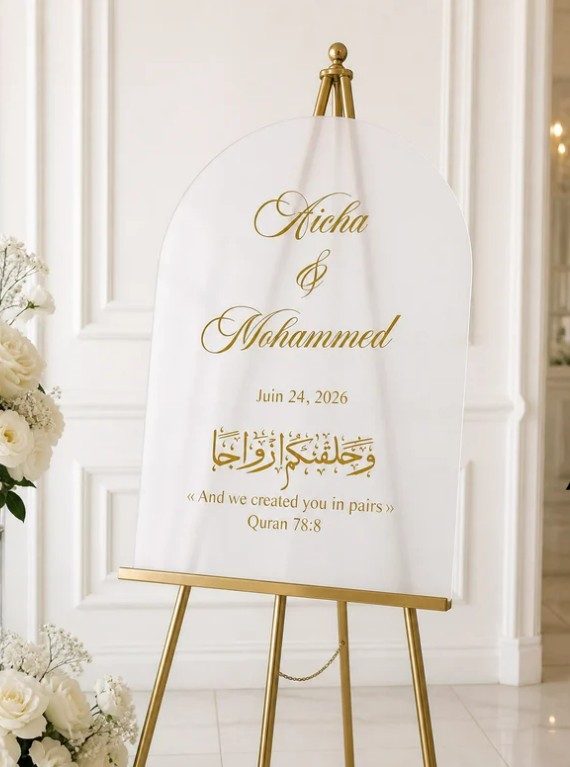 Aicha
&
Mohammed
Juin 24, 2026
وَخَلَقْنَكُم أَزْوَاجًا
« And we created you in pairs »
Quran 78:8